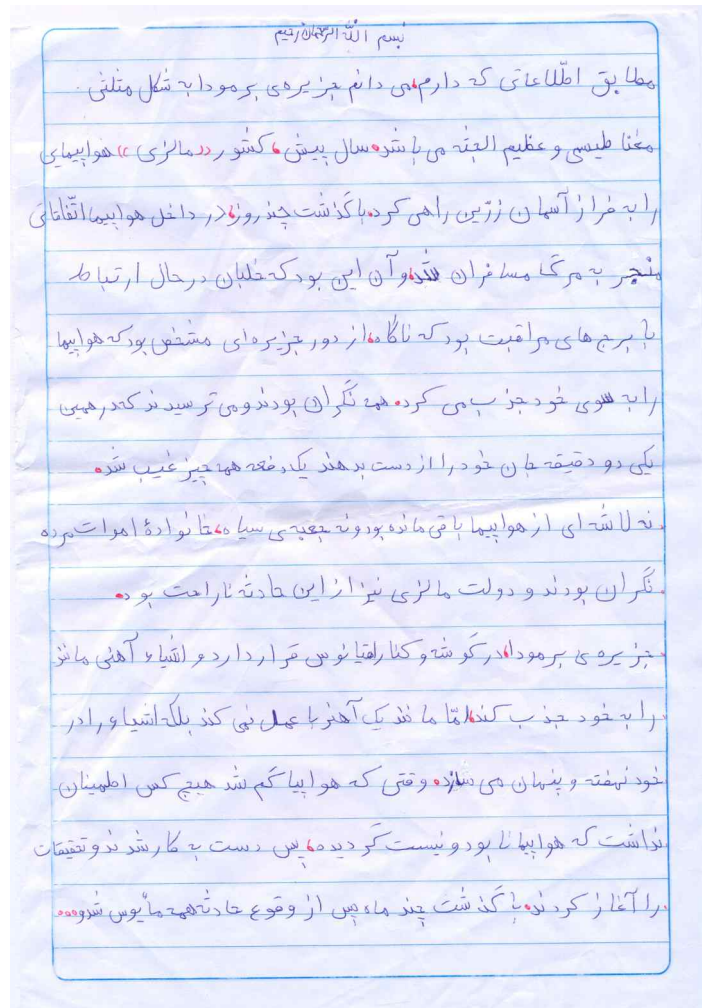 بسم اللّه الرحمان رحیم
مطابق اطّلاعاتی که دارم، می دانم جزیره‌ی برمودا به شکل مثلثی
مغناطیسی و عظیم الجثه می باشد. سال پیش، کشور «مالزی» هواپیمایی
را به فراز آسمان زرّین راهی کرد. با گذشت چند روز، در داخل هواپیما اتّفاقاتی
منجر به مرگ مسافران شد، و آن این بود که خلبان در حال ارتباط
با برج های مراقبت بود که ناگاه، از دور جزیره ای مشخص بود که هواپیما
را به سوی خود جذب می کرد. همه نگران بودند و می ترسیدند که در همین
یکی دو دقیقه جان خود را از دست بدهند یک دفعه همه چیز غیب شد.
نه لاشه ای از هواپیما باقی مانده بود و نه جعبه ی سیاه، خانوادهٔ اموات مرده
نگران بودند و دولت مالزی نیز از این حادثه ناراحت بود.
جزیره ی برمودا، در گوشه و کنار اقیانوس قرار دارد و اشیاء آهنی مانند
را به خود جذب کند، امّا مانند یک آهنربا عمل نمی کند بلکه اشیاء را در
خود نهفته و پنهان می سازد. وقتی که هواپیا گم شد هیچ کس اطمینان
نداشت که هواپیما نابود و نیست گردیده، پس دست به کار شدند و تحقیقات
را آغاز کردند. با گذشت چند ماه پس از وقوع حادثه همه مأیوس شدو...